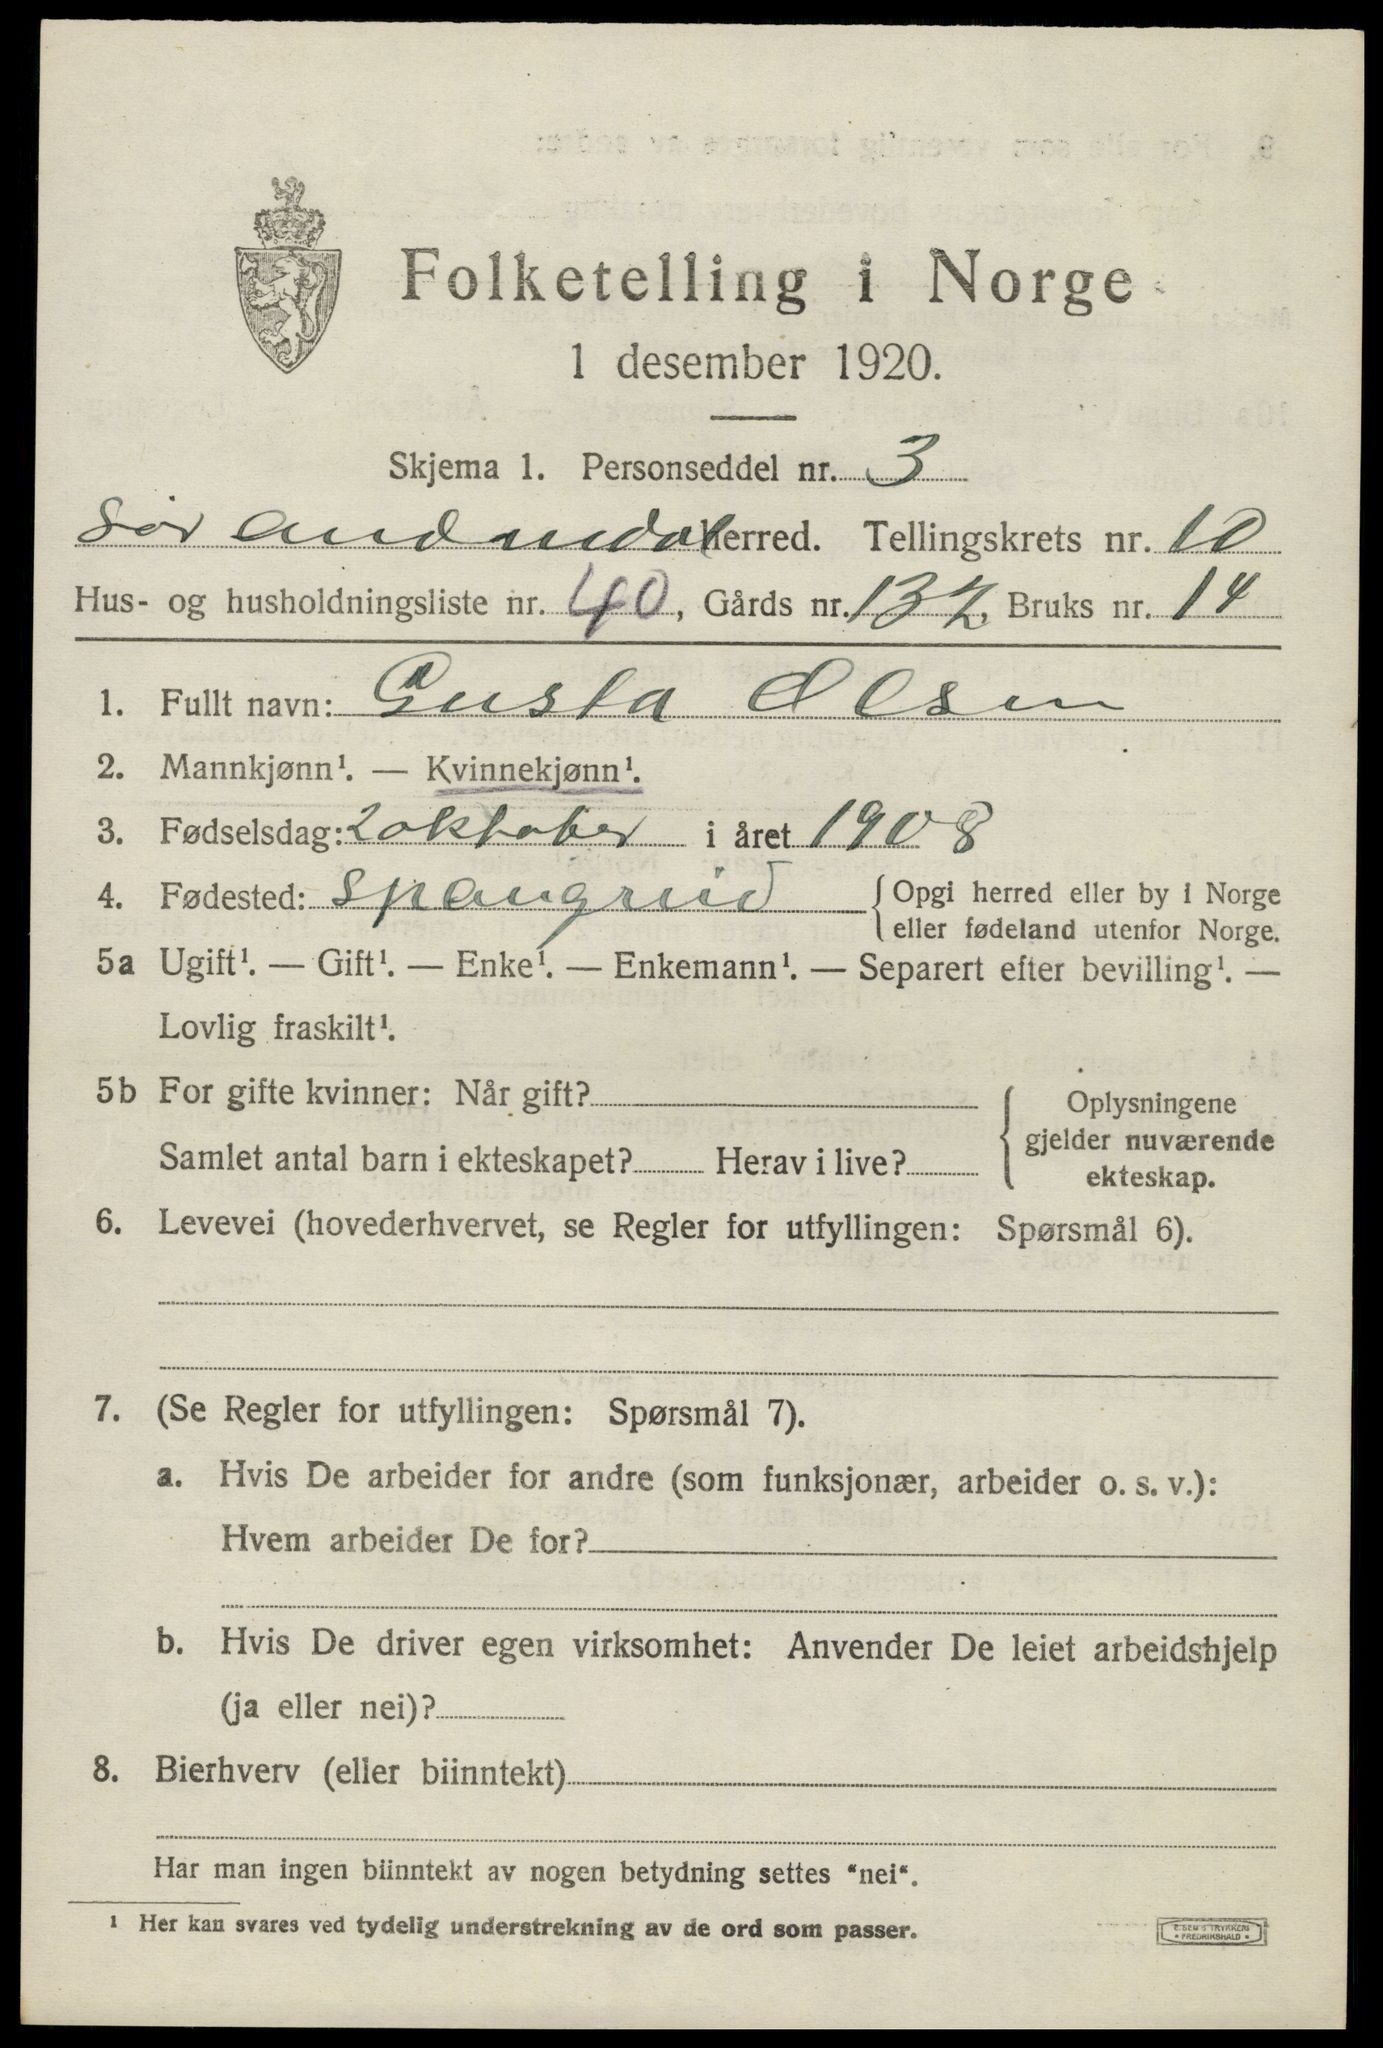 Folketelling i Norge
1 desember 1920.
Skjema 1. Personseddel nr. 3
Sør Audnedal herred. Tellingskrets nr. 10
Hus- og husholdningsliste nr. 40, Gårds nr. 132, Bruks nr. 14
1. Fullt navn: Gusta Olsen
2. Mannkjønn¹. — Kvinnekjønn¹.
3. Fødselsdag: 2 oktober i året 1908
4. Fødested: Spangreid {Opgi herred eller by i Norge
eller fødeland utenfor Norge.
5a Ugift¹. — Gift¹. — Enke¹. — Enkemann¹. — Separert efter bevilling¹. —
Lovlig fraskilt¹.
5b For gifte kvinner: Når gift?
Samlet antal barn i ekteskapet? Herav i live?
Oplysningene
gjelder nuværende
ekteskap.
6. Levevei (hovederhvervet, se Regler for utfyllingen: Spørsmål 6).
7. (Se Regler for utfyllingen: Spørsmål 7).
a. Hvis De arbeider for andre (som funksjonær, arbeider o. s. v.):
Hvem arbeider De for?
b. Hvis De driver egen virksomhet: Anvender De leiet arbeidshjelp
(ja eller nei)?
8. Bierhverv (eller biinntekt)
Har man ingen biinntekt av nogen betydning settes "nei".
¹ Her kan svares ved tydelig understrekning av de ord som passer.
FREDRIKSHALD